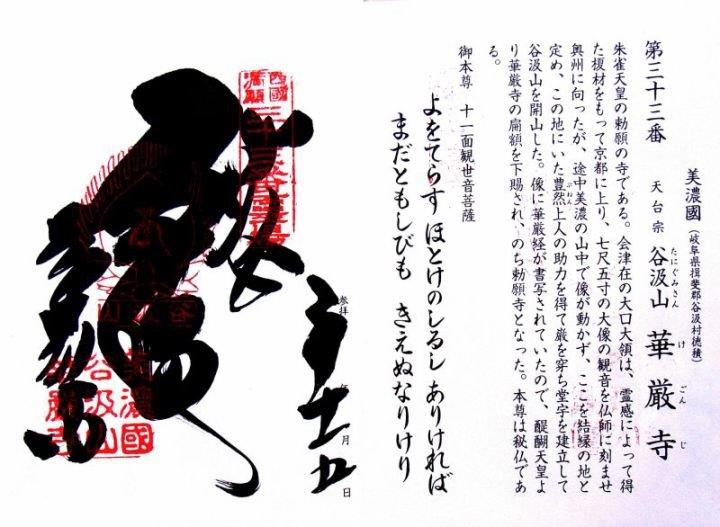 第三十三番
美濃國(岐阜県揖斐郡谷汲村徳積)
天台宗 谷汲山 華厳寺
たにぐみさん けごんじ
朱雀天皇の勅願の寺である。会津在の大口大領は、霊感によって得
た榎材をもって京都に上り、七尺五寸の大像の観音を仏師に刻ませ
奥州に向ったが、途中美濃の山中で像が動かず、ここを結縁の地と
定め、この地にいた豊然上人の助力を得て厳を穿ち堂宇を建立して
ぶねん
谷汲山を開山した。像に華厳経が書写されていたので、醍醐天皇よ
り華厳寺の扁額を下賜され、のち勅願寺となった。本尊は秘仏であ
る。
御本尊 十一面観世音菩薩
よをてらす ほとけのしるし ありければ
まだともしびも きえぬなりけり
参拝 年 月 日
西國
満願
美濃國
谷汲山